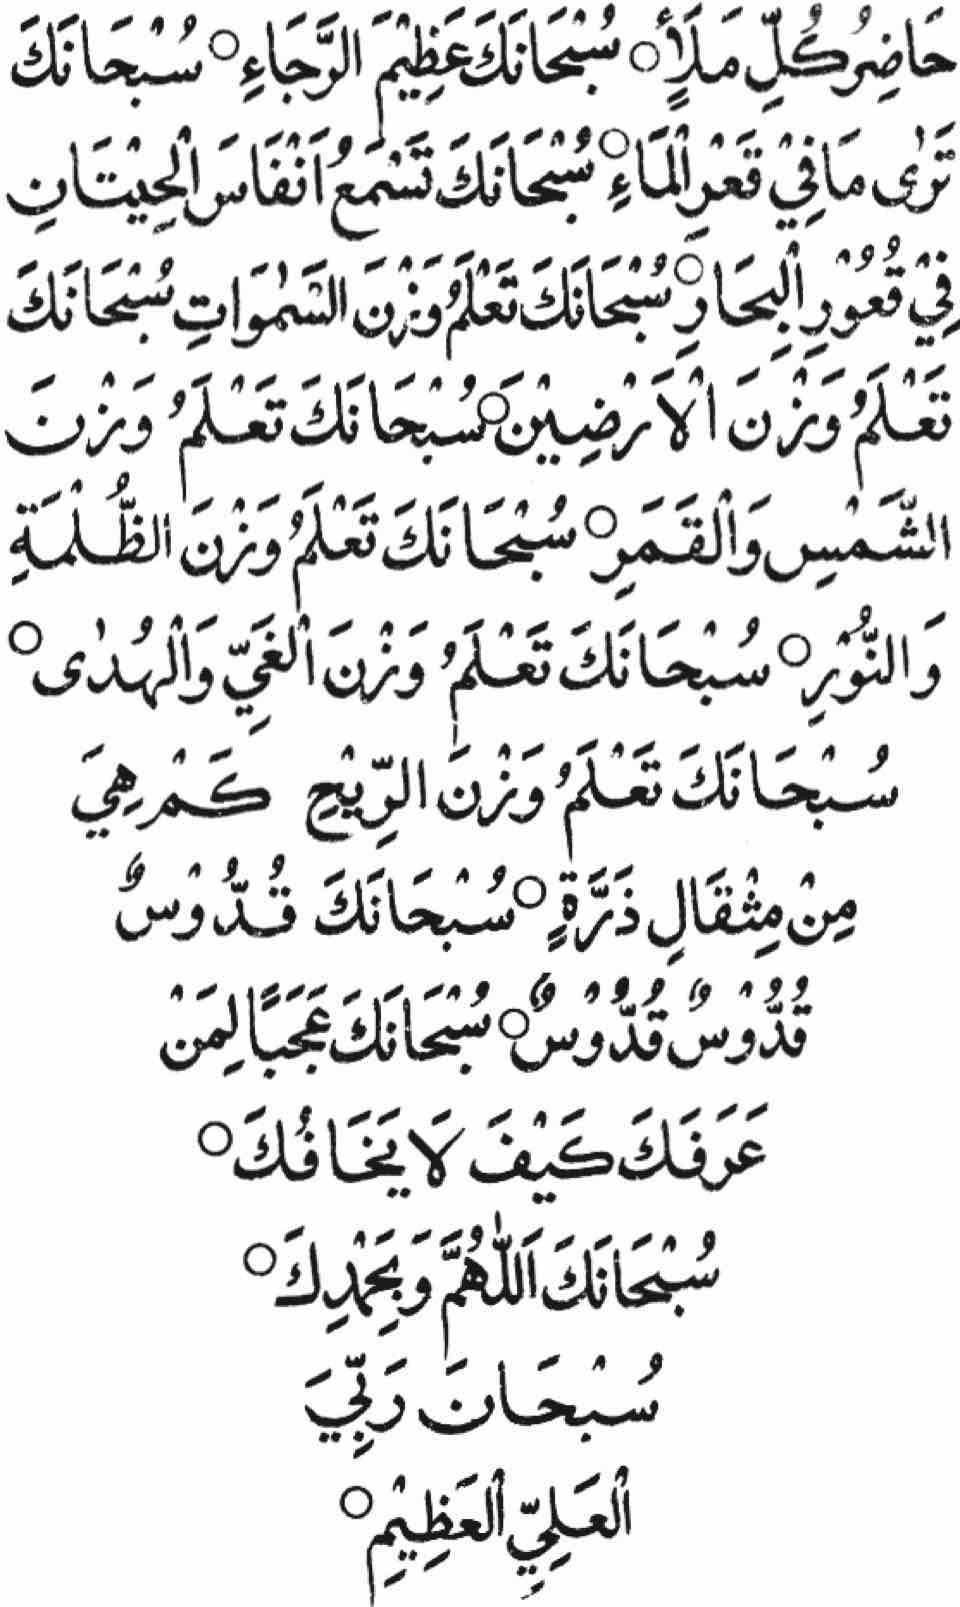 حَاضِرُ كُلِّ مَلَأٍ ○ سُبْحَانَكَ عَظِيْمَ الرَّجَاءِ ○ سُبْحَانَكَ
تَرٰى مَا فِيْ قَعْرِ الْمَاءِ ○ سُبْحَانَكَ تَسْمَعُ اَنْفَاسَ الْحِيْتَانِ
فِيْ قُعُوْرِ الْبِحَارِ ○ سُبْحَانَكَ تَعْلَمُ وَزْنَ السَّمٰوَاتِ سُبْحَانَكَ
تَعْلَمُ وَزْنَ الْاَرْضِيْنَ ○ سُبْحَانَكَ تَعْلَمُ وَزْنَ
الشَّمْسِ وَالْقَمَرِ ○ سُبْحَانَكَ تَعْلَمُ وَزْنَ الظُّلْمَةِ
وَالنُّوْرِ ○ سُبْحَانَكَ تَعْلَمُ وَزْنَ الْغَيِّ وَالْهُدٰى ○
سُبْحَانَكَ تَعْلَمُ وَزْنَ الرِّيْحِ كَمْ هِيَ
مِنْ مِثْقَالِ ذَرَّةٍ ○ سُبْحَانَكَ قُدُّوْسٌ
قُدُّوْسٌ قُدُّوْسٌ ○ سُبْحَانَكَ عَجَبًا لِمَنْ
عَرَفَكَ كَيْفَ لَا يَخَافُكَ ○
سُبْحَانَكَ اَللّٰهُمَّ وَبِحَمْدِكَ ○
سُبْحَانَ رَبِّيَ
الْعَلِيِّ الْعَظِيْمِ ○